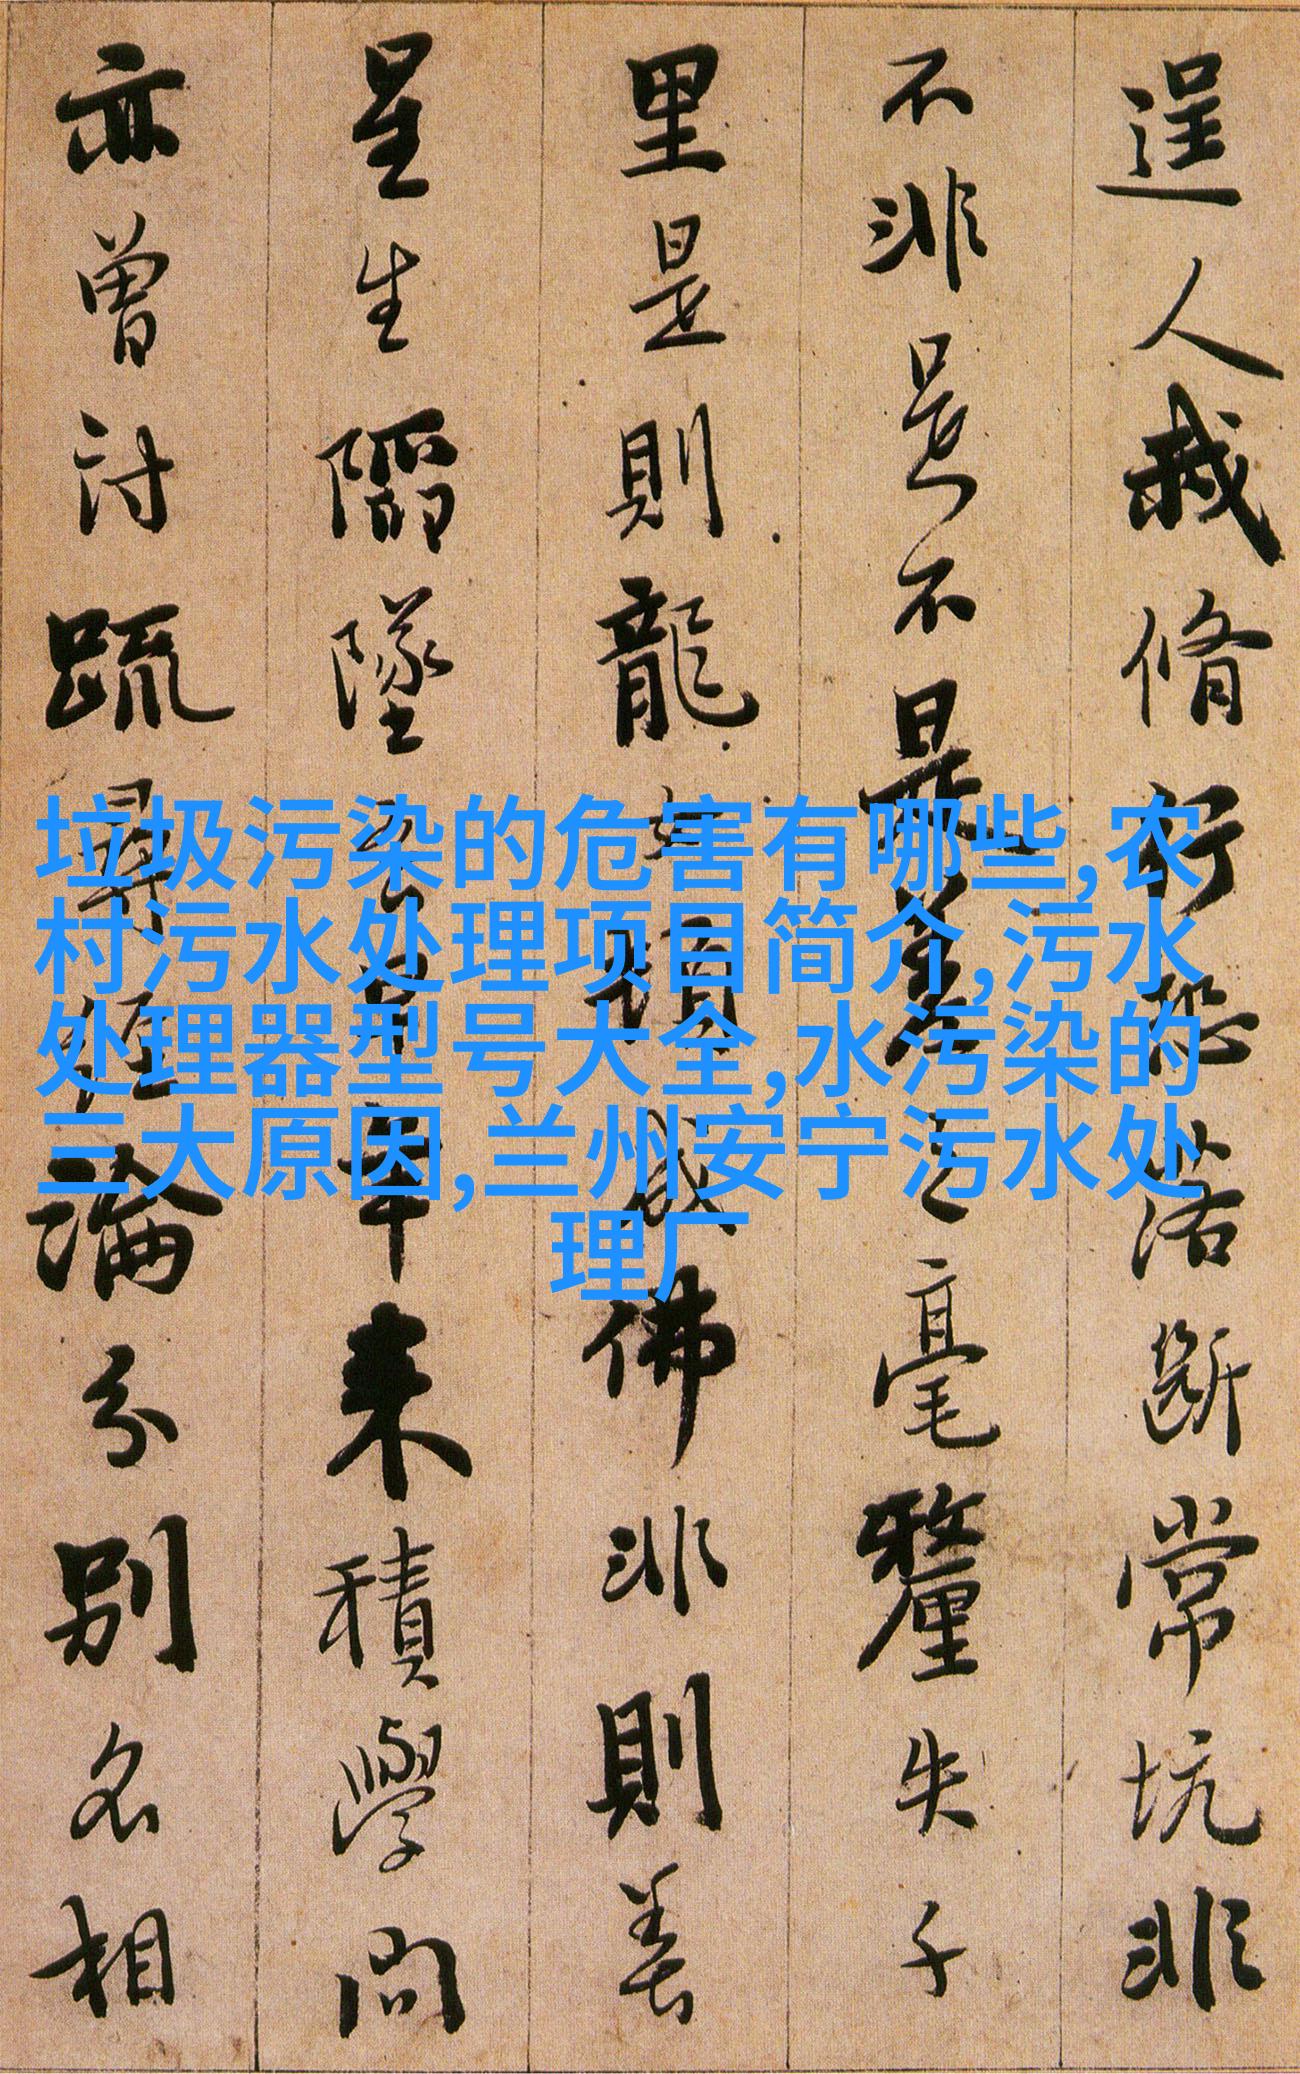 逞人我脩行恐落斷常坑非
不非是不是差之毫釐失千
里是則龍女頓成佛非則善
星生陷墜吾早年来積學問
亦曾討疏尋經論分別名相
垃圾污染的危害有哪些,农
村污水处理项目简介,污水
处理器型号大全,水污染的
三大原因,兰州安宁污水处
理厂